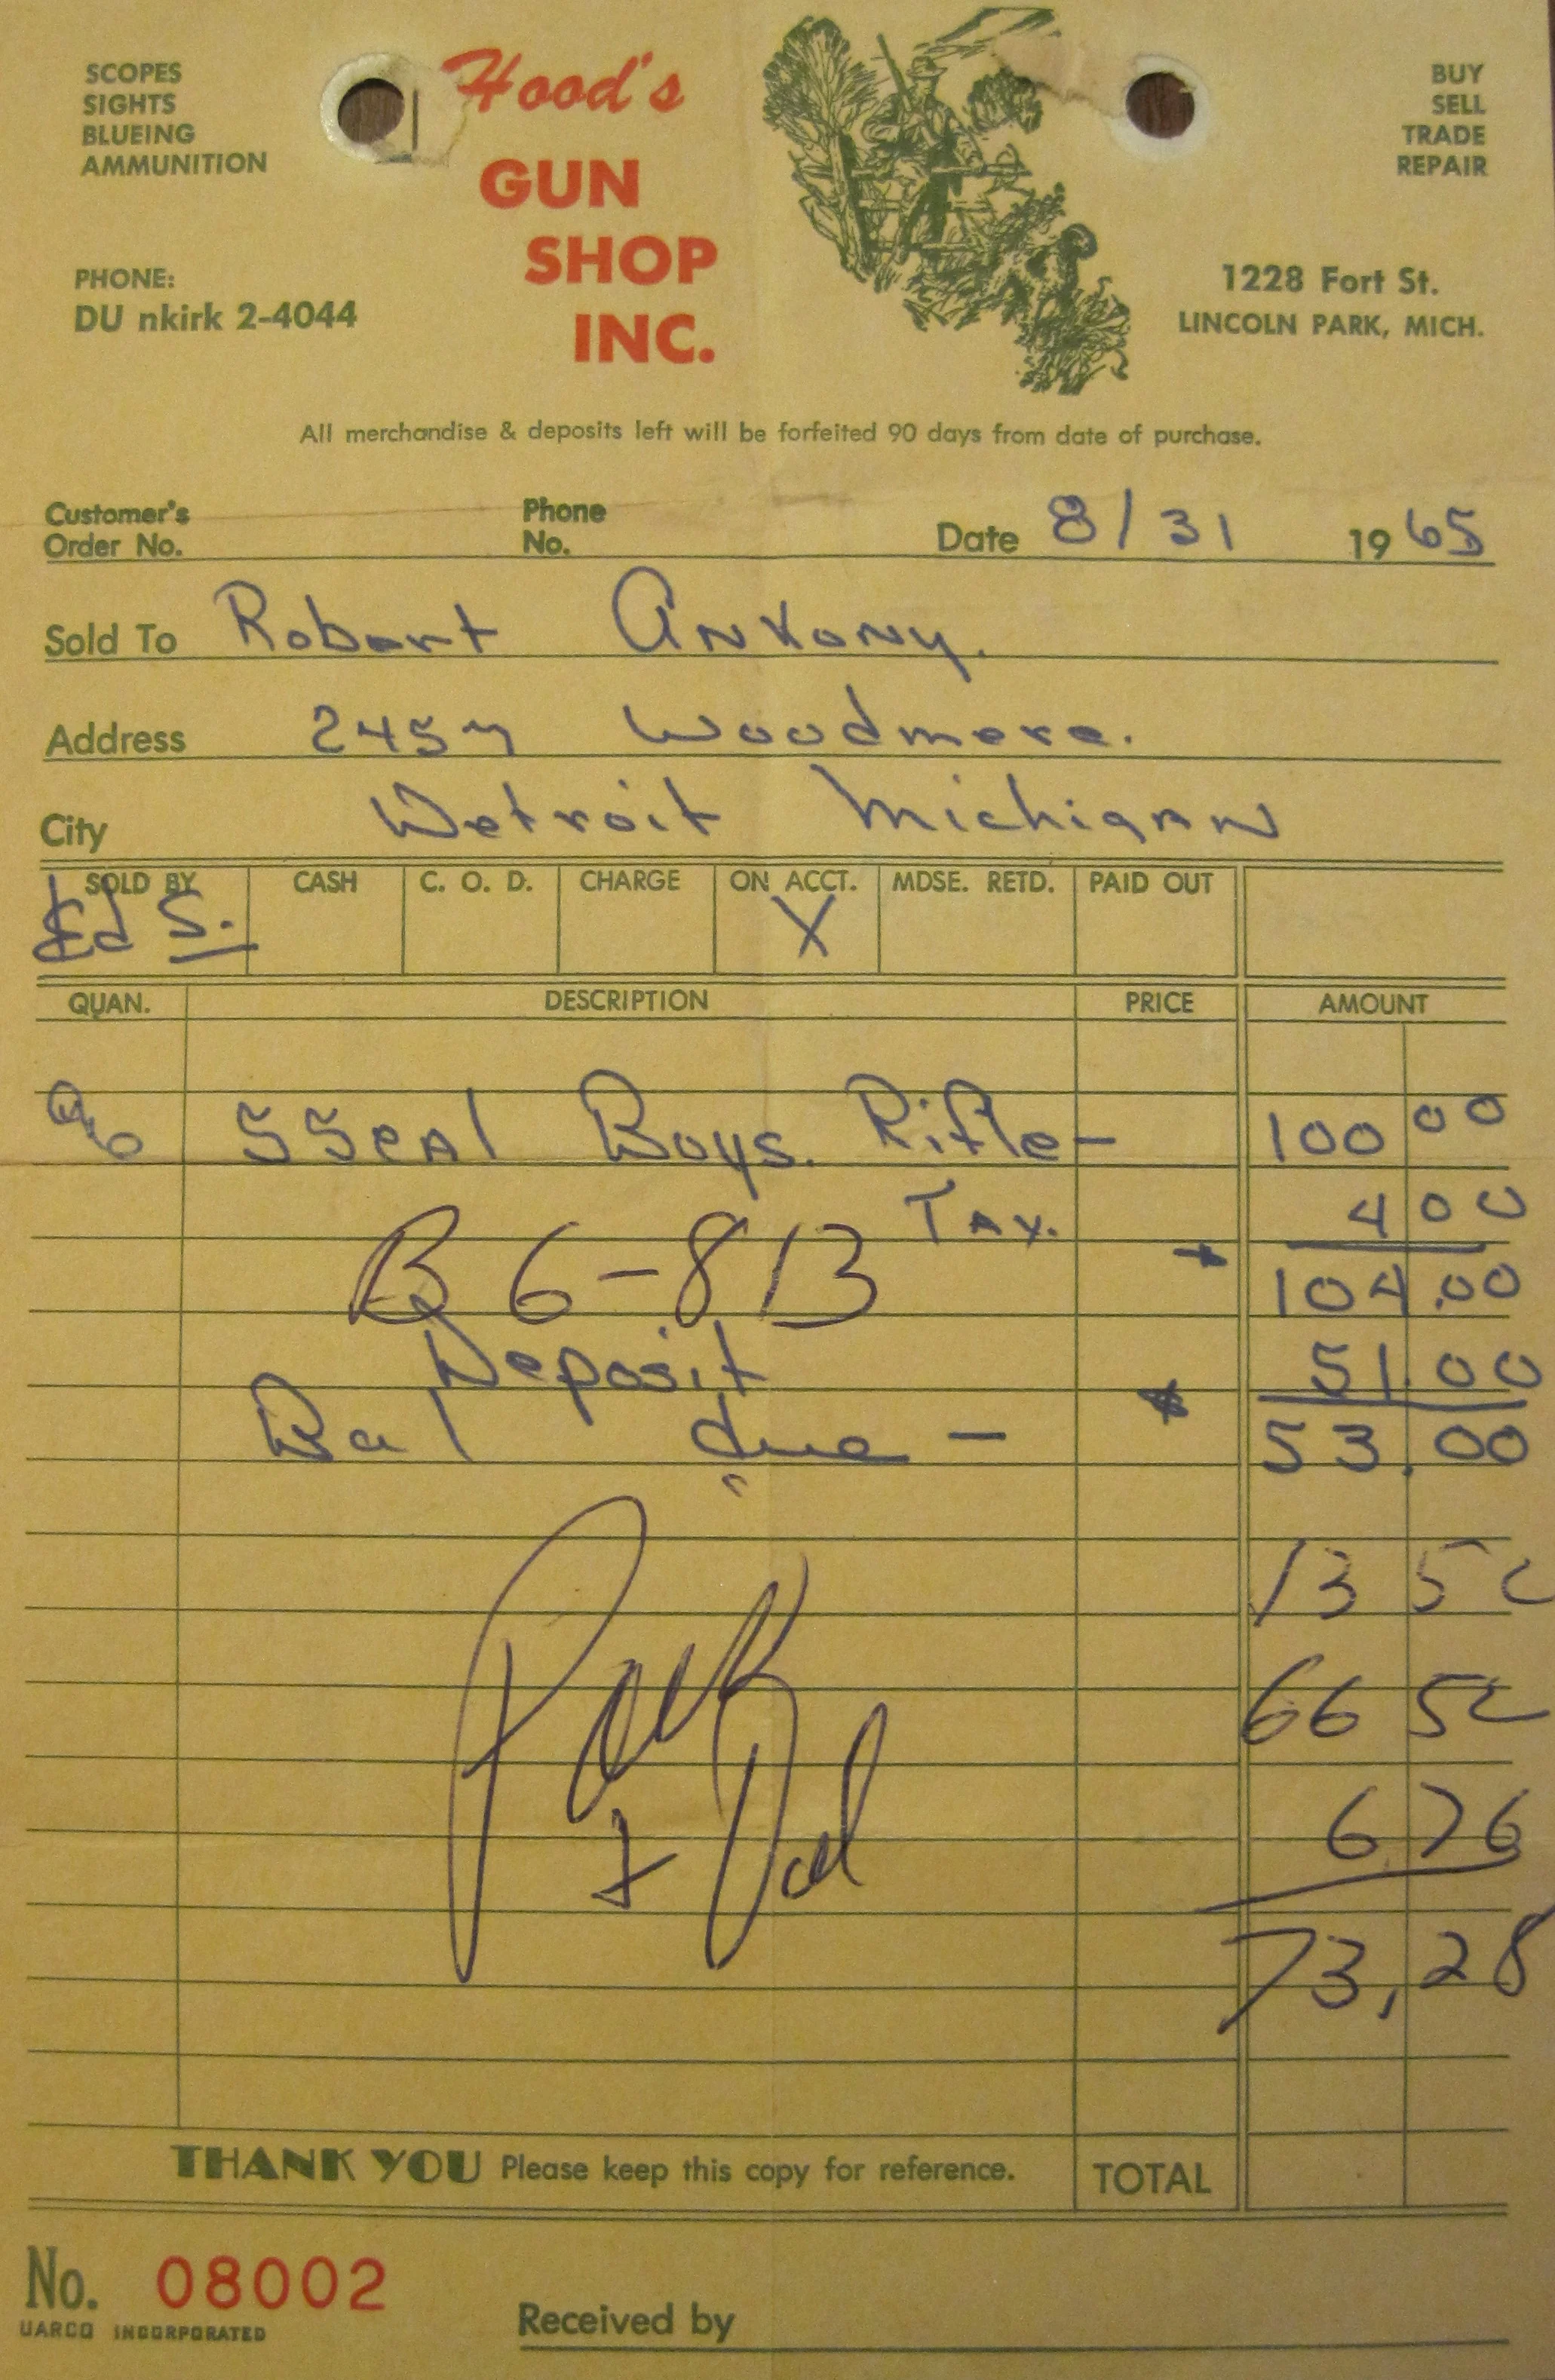 SCOPES
SIGHTS
BLUEING
AMMUNITION
Hood's
GUN
SHOP
INC.
BUY
SELL
TRADE
REPAIR
PHONE:
DU nkirk 2-4044
1228 Fort St.
LINCOLN PARK, MICH.
All merchandise & deposits left will be forfeited 90 days from date of purchase.
Customer's Order No. Phone No. Date 8/31 1965
Sold To Robert Ankony.
Address 2457 Woodmere.
City Detroit Michigan
SOLD BY CASH C. O. D. CHARGE ON ACCT. MDSE. RETD. PAID OUT
Ed S. X
QUAN. DESCRIPTION PRICE AMOUNT
55cal Boys. Rifle- 100 00
Tax. 4 00
B6-813 104.00
Deposit 51.00
Bal due - 53.00
13 50
66 50
6 76
73,28
THANK YOU Please keep this copy for reference. TOTAL
No. 08002
UARCO INCORPORATED
Received by